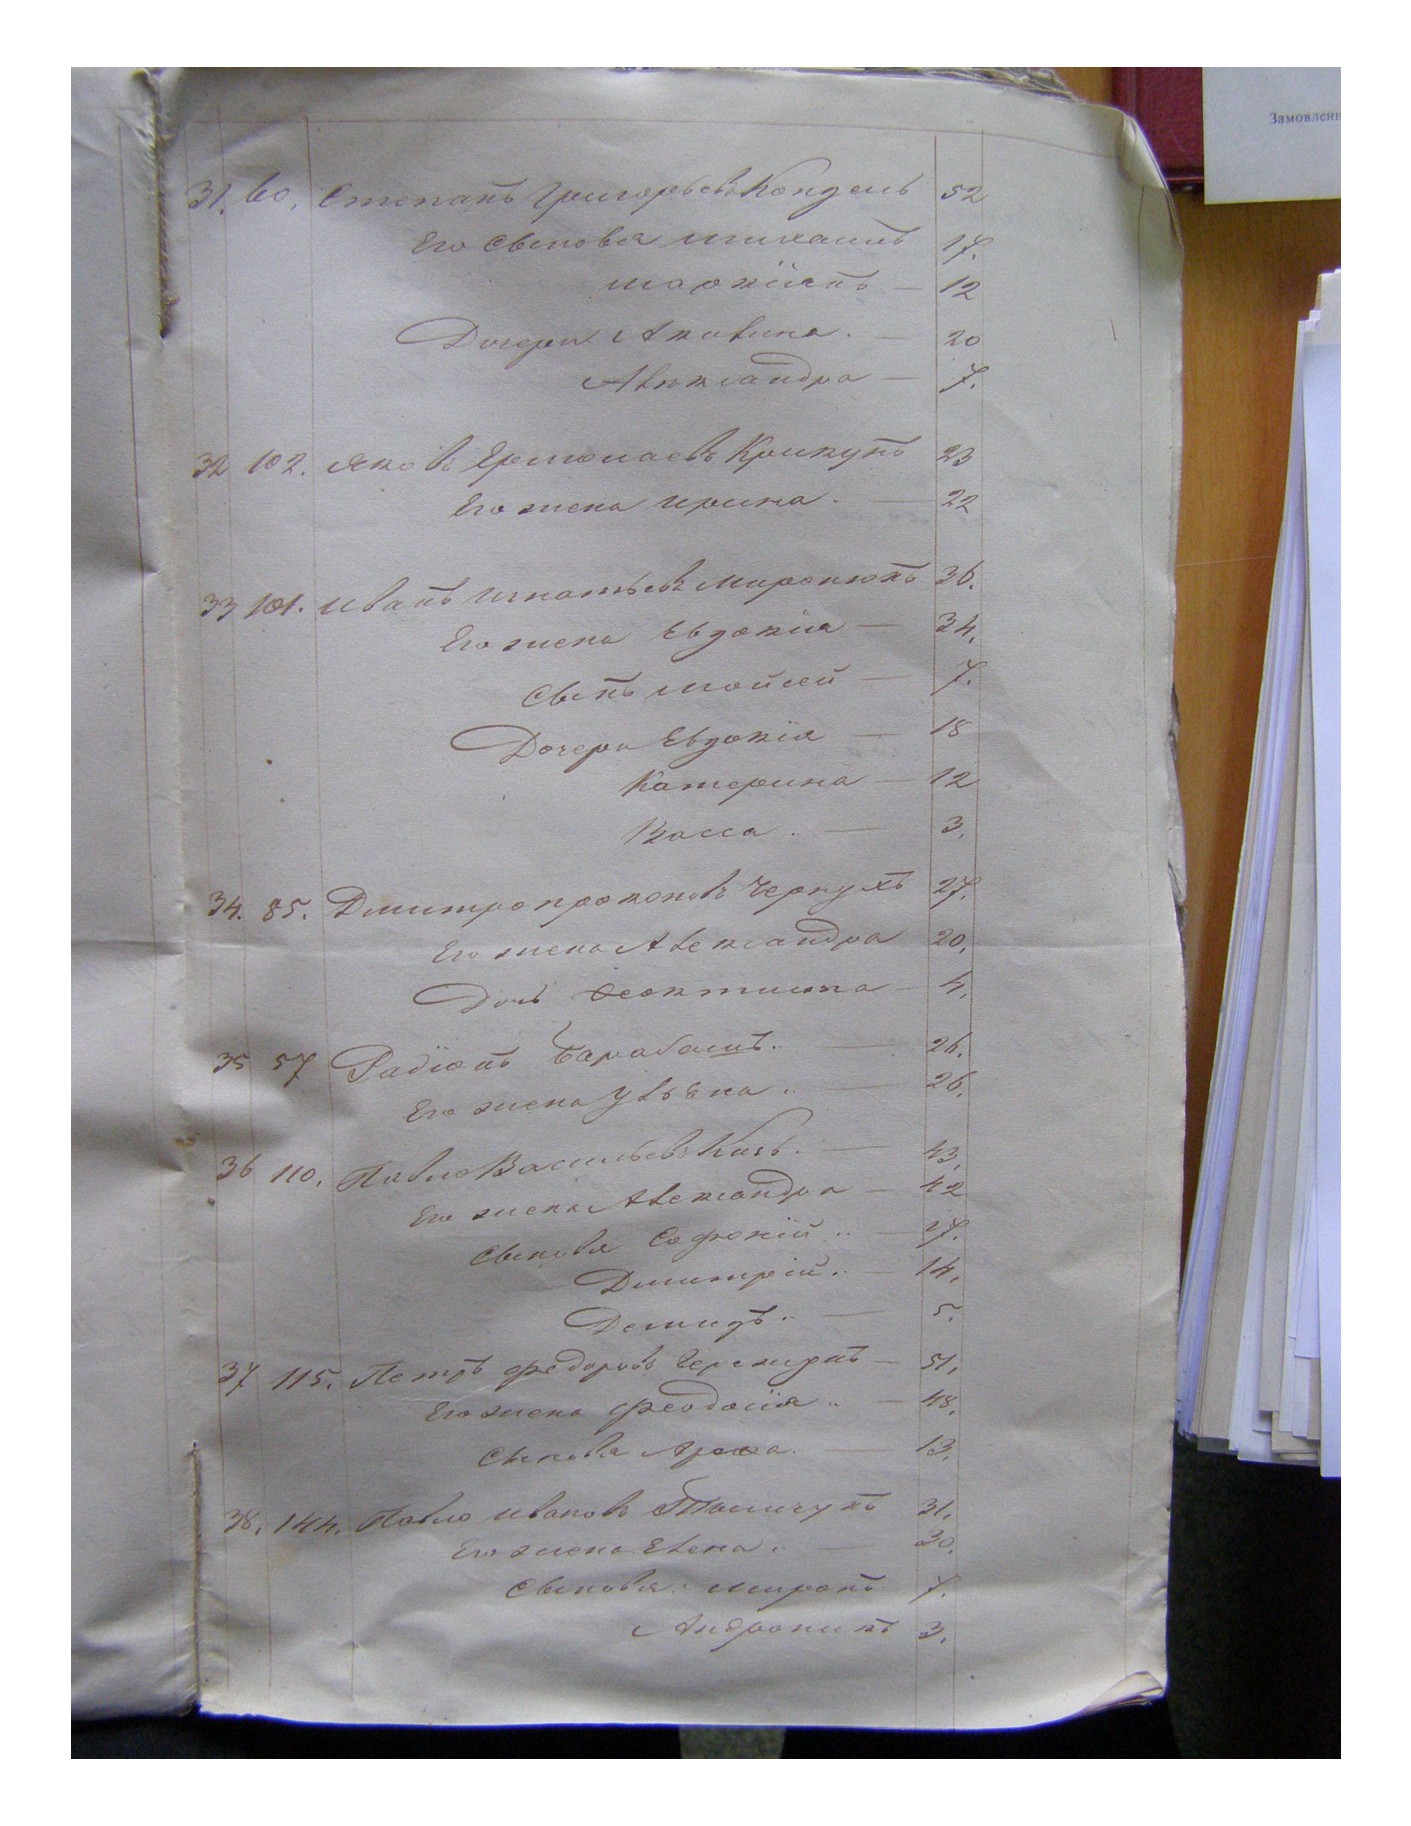 Замовленн
31. 60. Степанъ Григорьевъ Кондель 52
Его Сыновья Михаилъ 17.
Маркіянъ — 12
Дочери Акилина. — 20
Александра — 7.
32 102. Яковъ Ермолаевъ Крикунъ 23
Его жена Ирина. — 22
33 101. Иванъ Игнатьевъ Миронюкъ 36.
Его жена Евдокія — 34.
Сынъ Мойсей — 7.
Дочери Евдокія — 18
Катерина — 12
Васса. — 3.
34. 85. Дмитро Прокоповъ Чернухъ 27.
Его жена Александра 20.
Дочь Феоктиста — 4.
35 57 Радіонъ Барабашъ. — 26.
Его жена Ульяна. — 26.
36 110. Павло Васильевъ Кизь. — 43.
Его жена Александра — 42
Сыновья Софроній .. — 17.
Дмитрій. — 14.
Демидъ. — 5.
37 115. Петръ Федоровъ — 51.
Его жена Феодосія .. — 48.
Сыновья — 13.
38. 144. Павло Ивановъ 31.
Его жена Елена. — 30.
Сыновья: Миронъ 7.
Андроникъ 3.